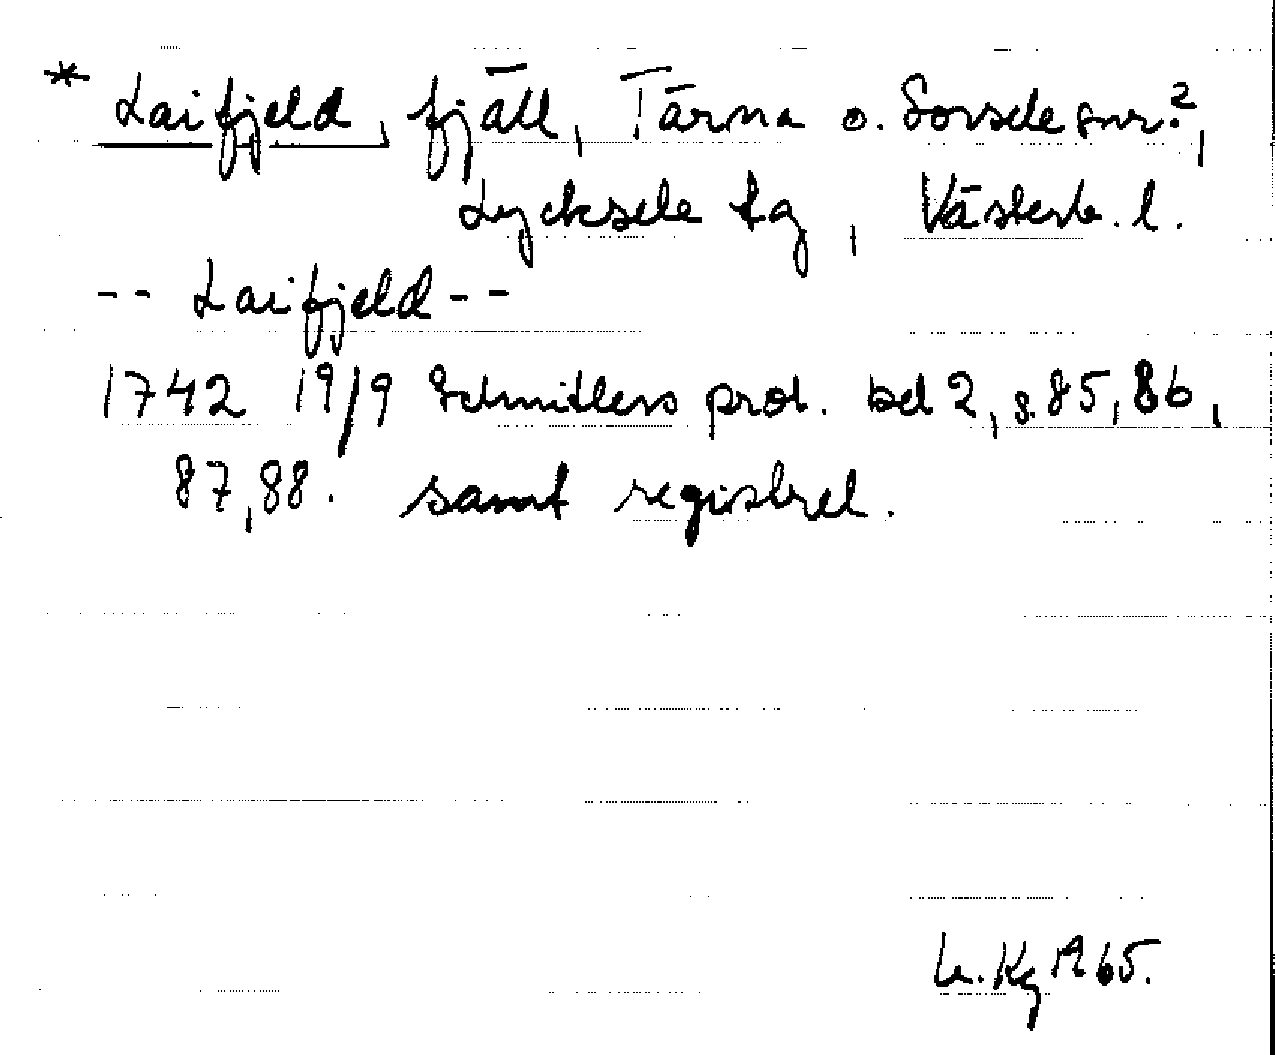 * Laifjeld, fjäll, Tärna o. Sorsele snr?,
Lycksele tg, Västerb. l.
-- Laifjeld --
1742 19/9 Schnitlers prot. bd 2, s. 85, 86,
87, 88. samt registret.
65.